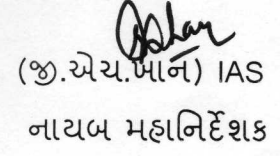 (જી.એચ.ખાન) IAS
નાયબ મહાનિર્દેશક